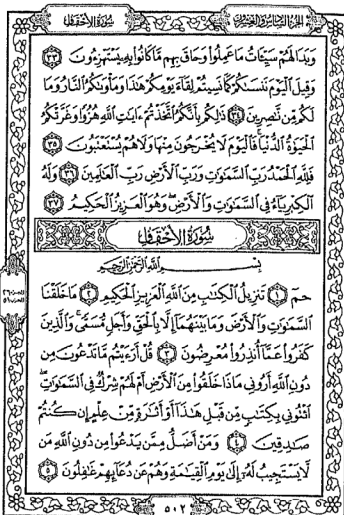 الجزء السادس والعشرون
سورة الأحقاف
وَبَدَا لَهُمْ سَيِّئَاتُ مَا عَمِلُوا وَحَاقَ بِهِم مَّا كَانُوا بِهِ يَسْتَهْزِءُونَ ٣٣
وَقِيلَ الْيَوْمَ نَنسَىٰكُمْ كَمَا نَسِيتُمْ لِقَاءَ يَوْمِكُمْ هَٰذَا وَمَأْوَىٰكُمُ النَّارُ وَمَا
لَكُم مِّن نَّٰصِرِينَ ٣٤ ذَٰلِكُم بِأَنَّكُمُ اتَّخَذْتُمْ ءَايَٰتِ اللَّهِ هُزُوًا وَغَرَّتْكُمُ
الْحَيَوٰةُ الدُّنْيَا فَالْيَوْمَ لَا يُخْرَجُونَ مِنْهَا وَلَا هُمْ يُسْتَعْتَبُونَ ٣٥
فَلِلَّهِ الْحَمْدُ رَبِّ السَّمَٰوَٰتِ وَرَبِّ الْأَرْضِ رَبِّ الْعَٰلَمِينَ ٣٦ وَلَهُ
الْكِبْرِيَاءُ فِي السَّمَٰوَٰتِ وَالْأَرْضِ وَهُوَ الْعَزِيزُ الْحَكِيمُ ٣٧
سُورَةُ الْأَحْقَافِ
بِسْمِ اللَّهِ الرَّحْمَٰنِ الرَّحِيمِ
حمٓ ١ تَنزِيلُ الْكِتَٰبِ مِنَ اللَّهِ الْعَزِيزِ الْحَكِيمِ ٢ مَا خَلَقْنَا
السَّمَٰوَٰتِ وَالْأَرْضَ وَمَا بَيْنَهُمَا إِلَّا بِالْحَقِّ وَأَجَلٍ مُّسَمًّى وَالَّذِينَ
كَفَرُوا عَمَّا أُنذِرُوا مُعْرِضُونَ ٣ قُلْ أَرَءَيْتُم مَّا تَدْعُونَ مِن
دُونِ اللَّهِ أَرُونِي مَاذَا خَلَقُوا مِنَ الْأَرْضِ أَمْ لَهُمْ شِرْكٌ فِي السَّمَٰوَٰتِ
ائْتُونِي بِكِتَٰبٍ مِّن قَبْلِ هَٰذَا أَوْ أَثَٰرَةٍ مِّنْ عِلْمٍ إِن كُنتُمْ
صَٰدِقِينَ ٤ وَمَنْ أَضَلُّ مِمَّن يَدْعُوا مِن دُونِ اللَّهِ مَن
لَّا يَسْتَجِيبُ لَهُ إِلَىٰ يَوْمِ الْقِيَٰمَةِ وَهُمْ عَن دُعَائِهِمْ غَٰفِلُونَ ٥
٥٠٢